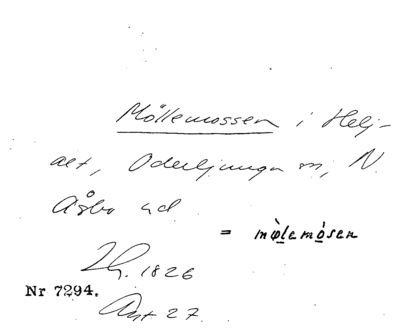 Möllemossen i Helj-
alt, Oderljunga sn, N.
Åsbo hd
= mølemosen
1826
Nr 7294.
27